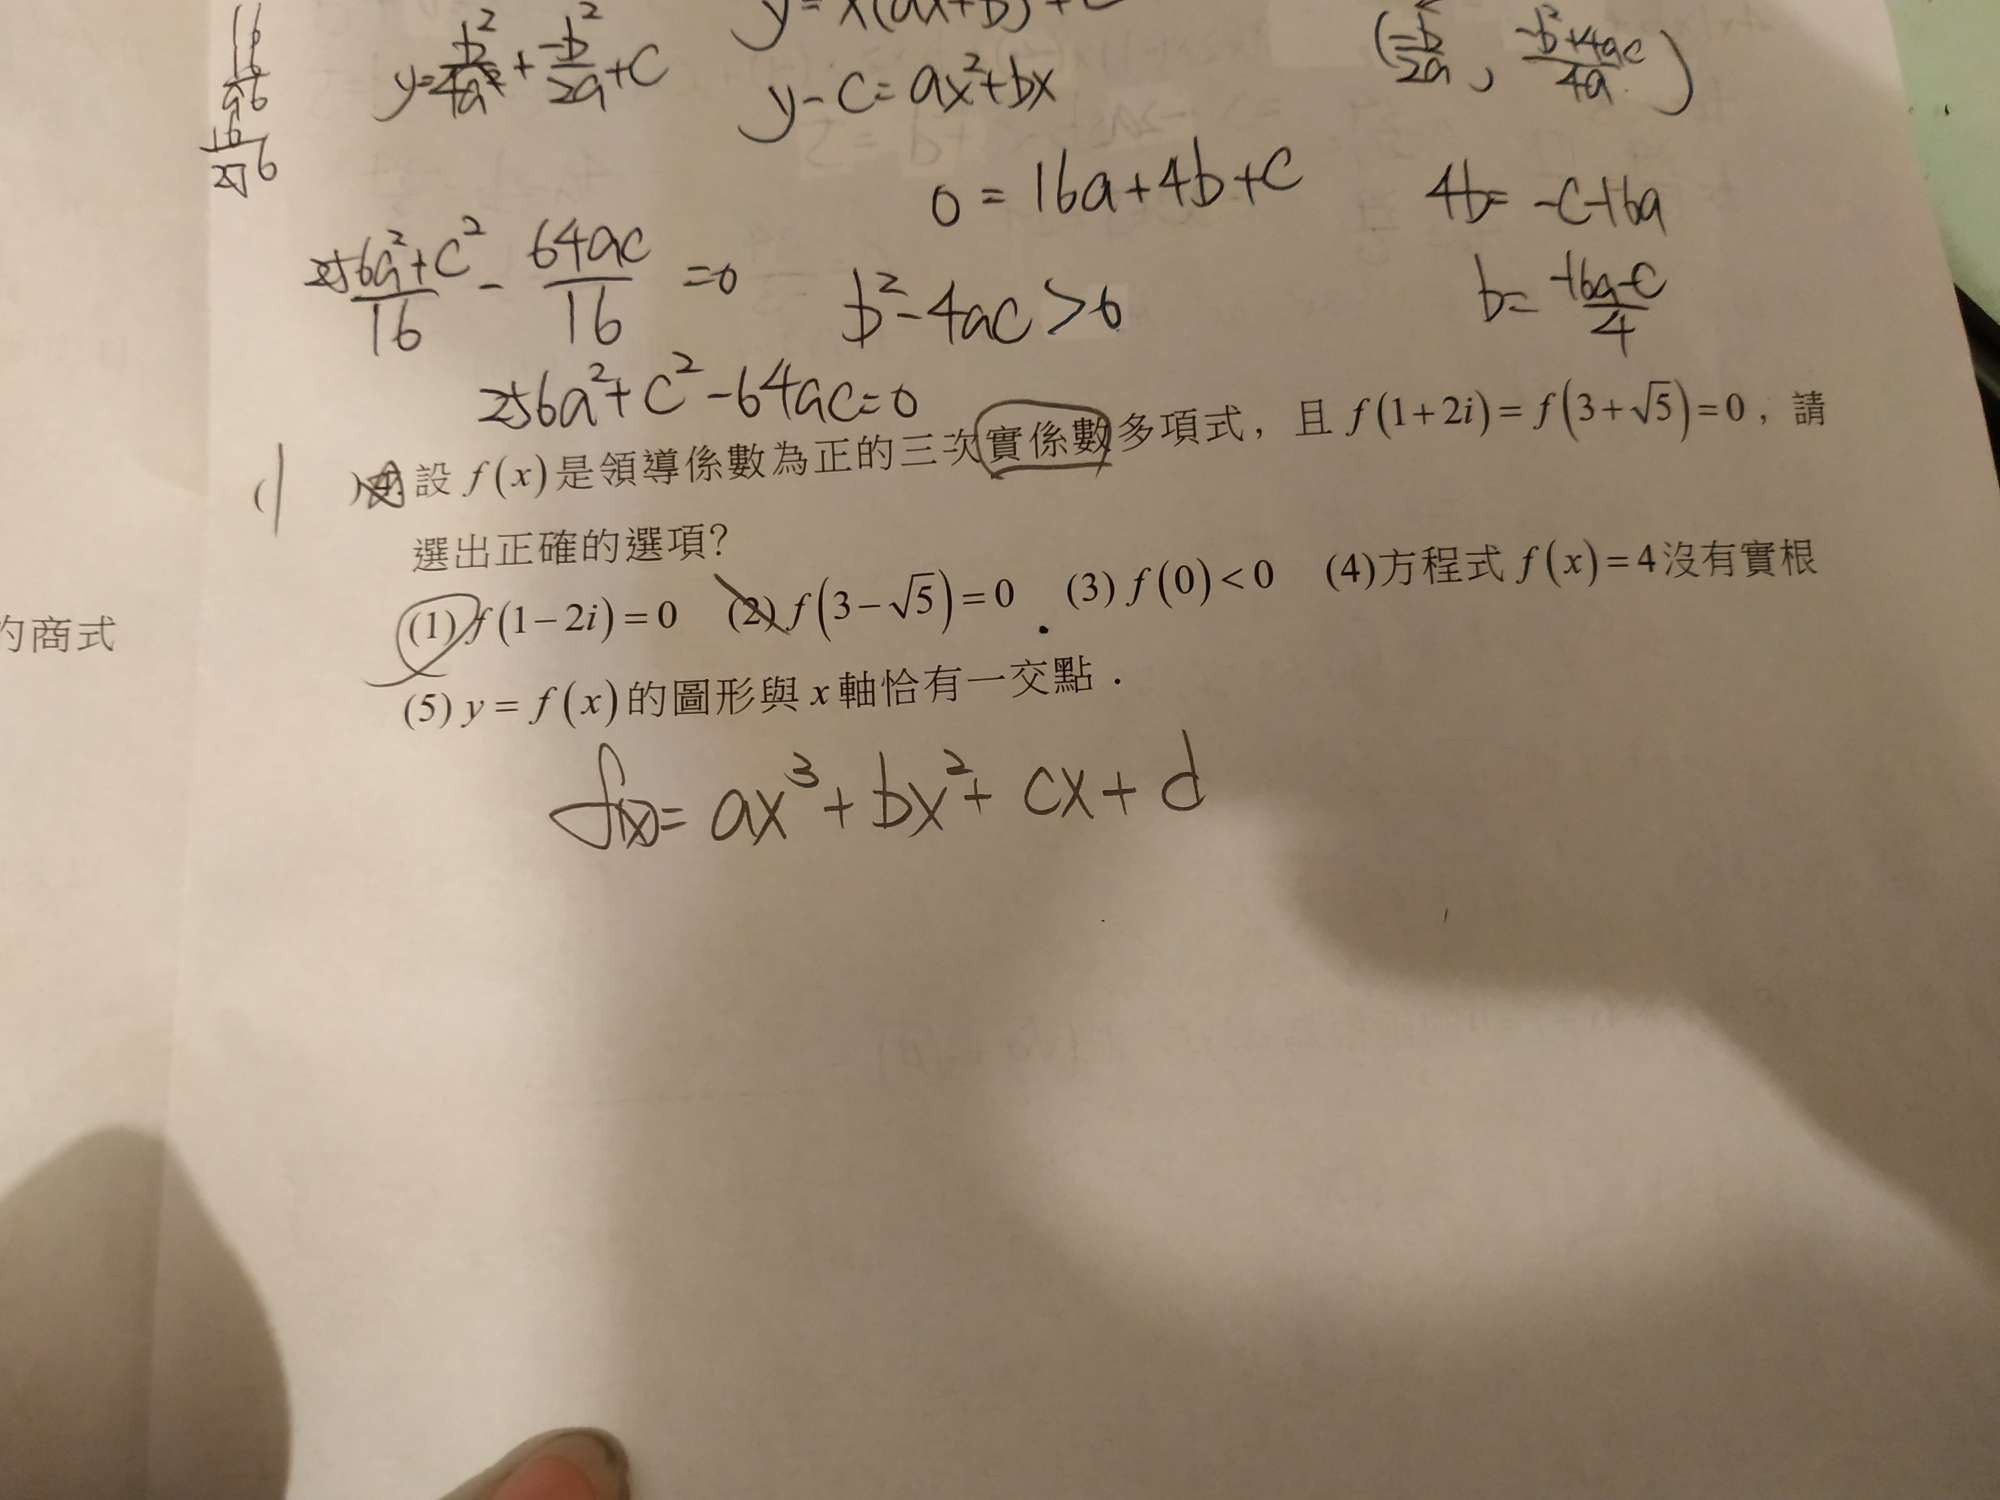 16
16
96
16
256
y=x(ax+b)+c
y=b²/4a²+-b²/2a+C
y-c=ax²+bx
(-b/2a, -b²+4ac/4a)
0=16a+4b+C
4b=-c-16a
256a²+c²/16-64ac/16=0
b²-4ac>0
b=-16a-c/4
256a²+c²-64ac=0
(1 )4.設f(x)是領導係數為正的三次實係數多項式，且f(1+2i)=f(3+√5)=0，請
選出正確的選項？
(1)f(1-2i)=0 (2)f(3-√5)=0 (3)f(0)<0 (4)方程式f(x)=4沒有實根
的商式
(5)y=f(x)的圖形與x軸恰有一交點．
f(x)=ax³+bx²+cx+d